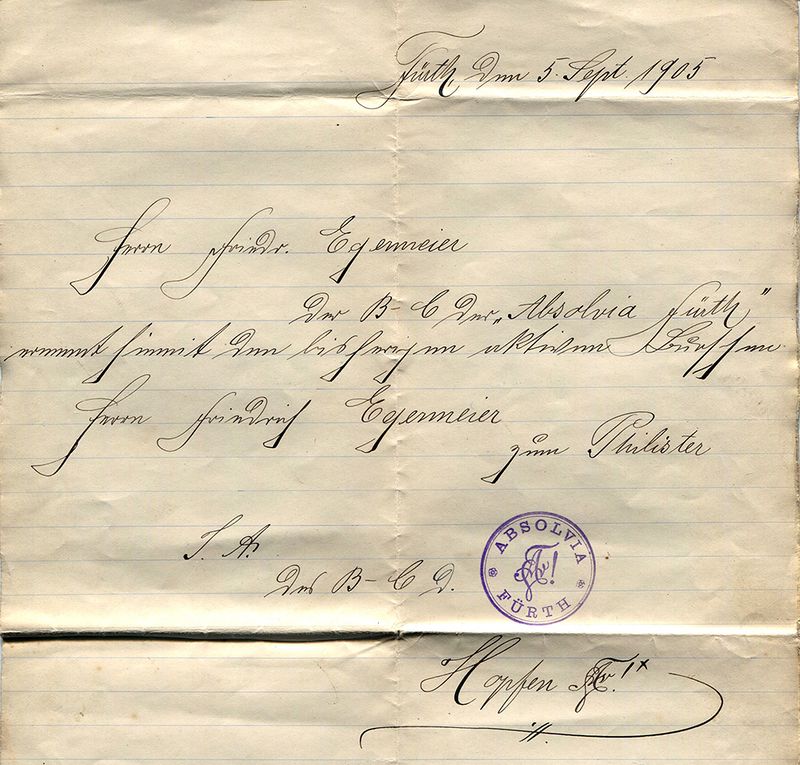 Fürth, den 5. Sept. 1905
Herrn Friedr. Egenmeier
Der B-C der „Absolvia Fürth"
ernennt hiemit den bisherigen aktiven Burschen
Herrn Friedrich Egenmeier
zum Philister
I. A.
des B-C d.
ABSOLVIA
FÜRTH
Hopfen